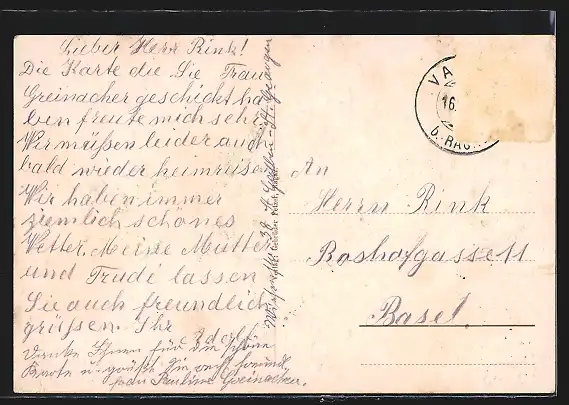 Lieber Herr Rink!
Die Karte die Sie Frau
Greinacher geschickt ha
ben freute mich sehr.
Wir müßen leider auch
bald wieder heimreisen
Wir haben immer
ziemlich schönes
Wetter. Meine Mutter
und Trudi lassen
Sie auch freundlich
grüßen. Ihr
Adolf
Danke Ihnen für die schöne
Karte u. grüße Sie recht freundl.
frau Pauline Greinacher.
St. Gallen - St. Georgen
An
Herrn Rink
Roshofgasse 11
Basel
VA
16.
b. RAG